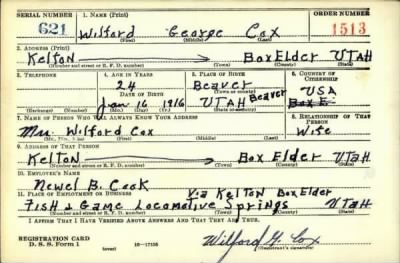 SERIAL NUMBER 1. NAME (Print) ORDER NUMBER
621 Wilford George Cox 1513
(First) (Middle) (Last)
2. ADDRESS (Print)
Kelton Box Elder UTAH
(Number and street or R. F. D. number) (Town) (County) (State)
3. TELEPHONE 4. AGE IN YEARS 5. PLACE OF BIRTH 6. COUNTRY OF CITIZENSHIP
24 Beaver
DATE OF BIRTH (Town or county) USA
Jan 16 1916 UTAH Beaver Box E.
(Exchange) (Number) (Mo.) (Day) (Yr.) (State or country)
7. NAME OF PERSON WHO WILL ALWAYS KNOW YOUR ADDRESS 8. RELATIONSHIP OF THAT PERSON
Mrs. Wilford Cox Wife
(Mr., Mrs., Miss) (First) (Middle) (Last)
9. ADDRESS OF THAT PERSON
Kelton Box Elder Utah
(Number and street or R. F. D. number) (Town) (County) (State)
10. EMPLOYER'S NAME
Newel B. Cook
11. PLACE OF EMPLOYMENT OR BUSINESS Via Kelton Box Elder
Fish & Game Locomotive Springs Utah
(Number and street or R. F. D. number) (Town) (County) (State)
I AFFIRM THAT I HAVE VERIFIED ABOVE ANSWERS AND THAT THEY ARE TRUE.
REGISTRATION CARD
D. S. S. Form 1 (over) 16—17105 Wilford G. Cox
(Registrant's signature)